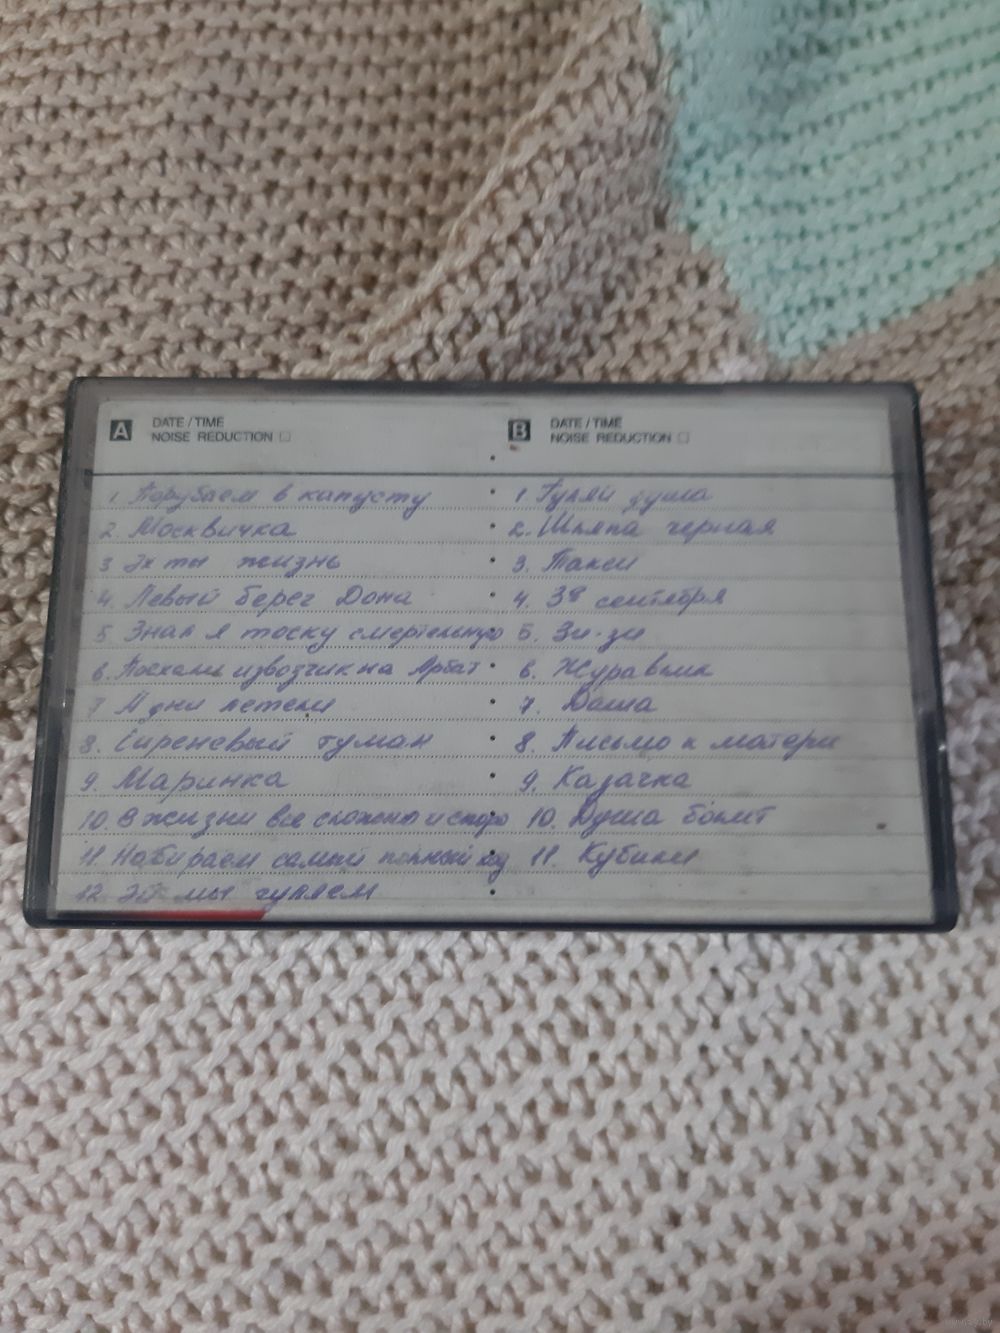 A DATE / TIME
NOISE REDUCTION
1. Порубаем в капусту
2. Москвичка
3 Эх ты жизнь
4. Левый берег Дона
5 Знал я тоску смертельную
6. Поехали извозчик на Арбат
7 А дни летели
8. Сиреневый туман
9. Маринка
10. В жизни все сложно и
11. Набираем самый полный ход
12 Эй мы гуляем
B DATE / TIME
NOISE REDUCTION
1. Гуляй душа
2. Шляпа черная
3. Такси
4. 3е сентября
5. Зи-зи
6. Журавлик
7. Даша
8. Письмо к матери
9. Казачка
10. Душа болит
11. Кубики